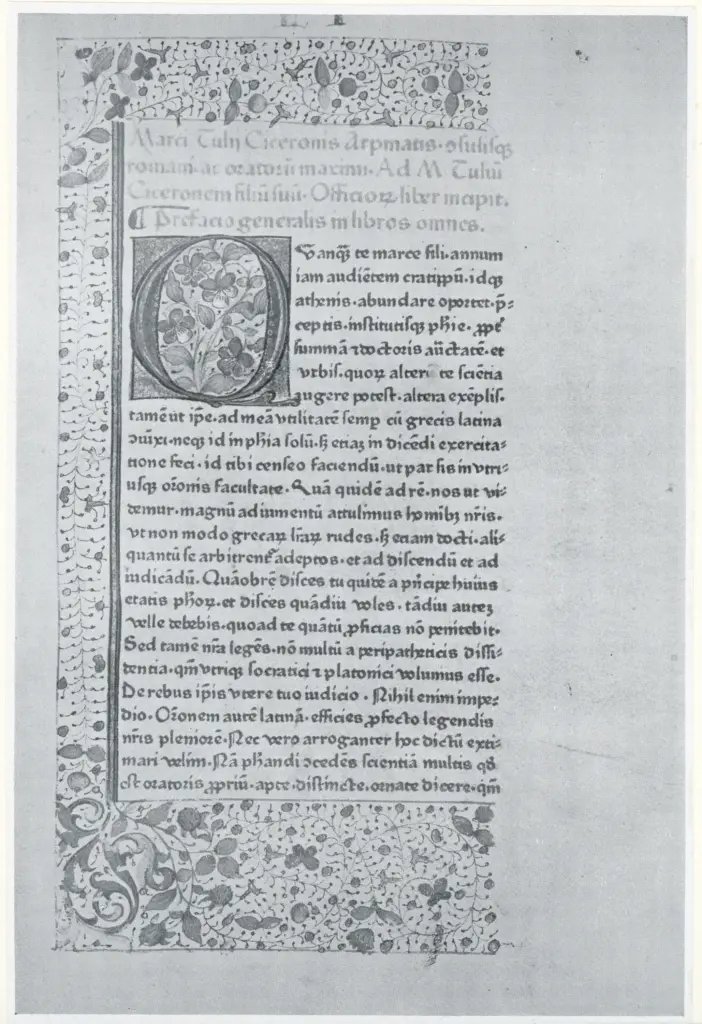 Marci Tulij Ciceronis Arpinatis·ↄsulisqꝫ
romani·ac oratorū maximi·Ad M Tuliū
Ciceronem filiū suū·Officioꝝ liber incipit.
¶ Prefacio generalis in libros omnes.
QVanqꝫ te marce fili·annum
iam audiētem cratippū·idqꝫ
athenis·abundare oportet·p̄⸗
ceptis·institutisqꝫ phīe·ꝓpt̄
summā ⁊ doctoris auctatē·et
vrbis·quoꝝ alter te sciētia
augere potest·altera exēplis.
tamē ut ip̄e·ad meā vtilitatē semꝑ cū grecis latina
ↄiūxi·neqꝫ id in phīa solū·sꝫ etiaꝫ in dicēdi exercita⸗
tione feci·id tibi censeo faciendū·ut par sis in vtri⸗
usqꝫ or̄onis facultate·Quā quidē ad rē·nos ut vi⸗
demur·magnū adiumentū attulimus homībꝫ nr̄is.
vt non modo grecaꝝ lr̄aꝝ rudes·sꝫ etiam docti·ali⸗
quantū se arbitrent᷑ adeptos·et ad discendū et ad
iudicādū. Quāobrē disces tu quidē a prīcipe huius
etatis phōꝝ·et disces quādiu voles·tādiu auteꝫ
velle debebis·quoad te quātū ꝓficias nō penitebit·
Sed tamē nr̄a legēs·nō multū a peripatheticis dissi⸗
dentia·qm̄ vtriqꝫ socratici ⁊ platonici volumus esse.
De rebus ip̄is vtere tuo iudicio·Nihil enim impe⸗
dio·Or̄onem autē latinā·efficies ꝓfecto legendis
nr̄is pleniorē·Nec vero arroganter hoc dictū exti⸗
mari velim·Nā phandi ↄcedēs scientiā multis qd̄
est oratoris ꝓpriū·apte·distincte·ornate dicere·qm̄